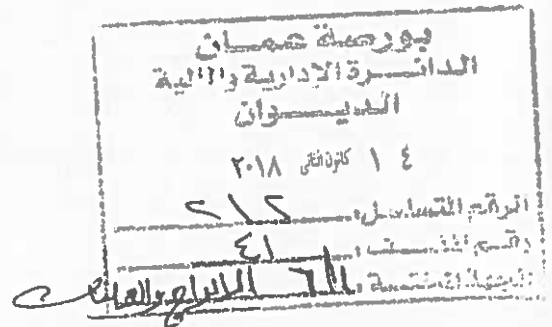 بورصة عمان
الدائرة الإدارية والمالية
الديوان
١٤ كانون الثاني ٢٠١٨
الرقم المتسلسل: ٢١٢
رقم الملف: ٤١
الجهة المختصة: الادراج والعمليات